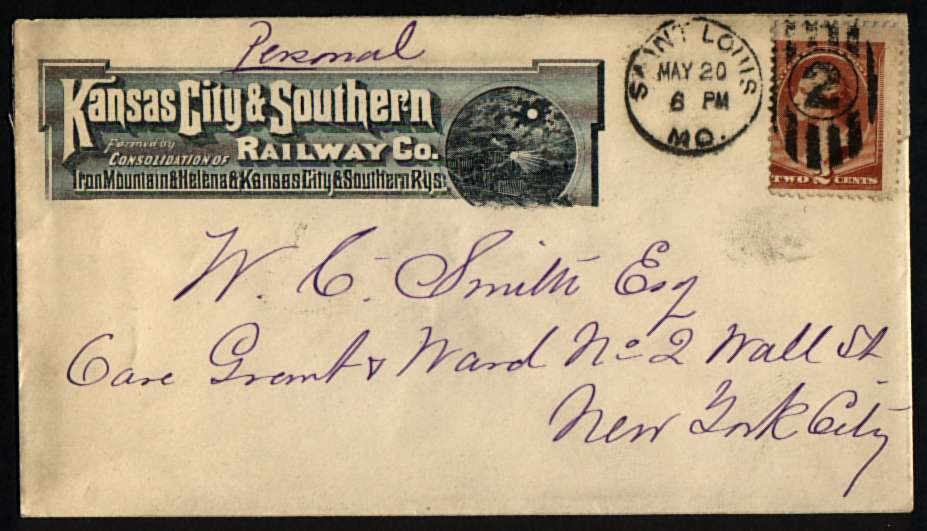 Personal
Kansas City & Southern
Formed by
CONSOLIDATION OF RAILWAY CO.
Iron Mountain & Helena & Kansas City & Southern Rys.
SAINT LOUIS
MAY 20
6 PM
MO.
2
TWO 2 CENTS
W. C. Smith Esq
Care Grant & Ward No 2 Wall St
New York City